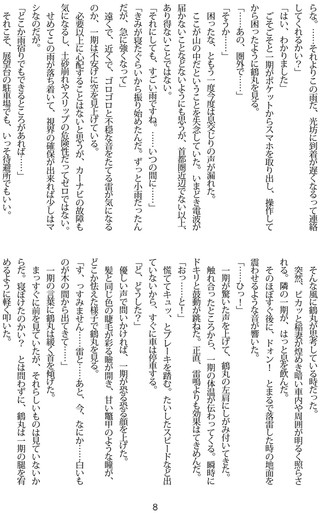 らな。……それよりこの雨だ、光坊に到着が遅くなるって連絡
してくれるかい？」
「はい、わかりました」
ごそごそと一期がポケットからスマホを取り出し、操作して
から困ったように鶴丸を見る。
「……あの、圏外で……」
「そうか……」
困ったな、ともう一度今度は息交じりの声が漏れた。
ここが山の中だということを失念していた。いまどき電波が
届かないことなどないようにも思うが、首都圏近辺でない以上、
あり得ないことではない。
「それにしても、すごい雨ですね。……いつの間に……」
「きみが寝たぐらいから振り始めたんだ。ずっと小雨だったん
だが、急に強くなって」
遠くで、近くで、ゴロゴロと不穏な音をたてる雷が気になる
のか、一期は不安げに空を見上げている。
必要以上に心配することはないと思うが、カーナビの故障も
気になるし、土砂崩れやスリップの危険性だってゼロではない。
せめてこの雨が落ち着いて、視界の確保が出来れば少しはマ
シなのだが。
「どこか雨宿りでもできるところがあれば……」
それこそ、展望台の駐車場でも、いっそ待避所でもいい。
そんな風に鶴丸が思考している時だった。
突然、ピカッと稲妻が煌めき暗い車内や周囲が明るく照らさ
れる。隣の一期が、はっと息を飲んだ。
そのほぼすぐ後に、ドォン！　とまるで落雷した時の地面を
震わせるような音が響いた。
「……ひっ！」
一期が驚いた声を上げて、鶴丸の左肩にしがみ付いてきた。
触れ合ったところから、一期の体温が伝わってくる。瞬時に
ドキリと鼓動が跳ねた。正直、雷鳴よりも効果はてきめんだ。
「おっ……と！」
慌ててキュッ、とブレーキを踏む。たいしたスピードなど出
ていないから、すぐに車は停車する。
「ど、どうした？」
優しい声で問いかければ、一期が恐る恐る顔を上げた。
髪と同じ色の睫毛が彩る瞼が開き、甘い鼈甲のような瞳が、
どこか怯えた様子で鶴丸を見る。
「す、っすみません……雷と……あと、今、なにか……白いも
のが木の間から出てきて……」
一期の言葉に鶴丸は緩く首を傾げた。
まっすぐに前を見ていたが、それらしいものは見ていないか
らだ。寝ぼけたのかい？　とは問わずに、鶴丸は一期の腿を宥
めるように軽く叩いた。
8